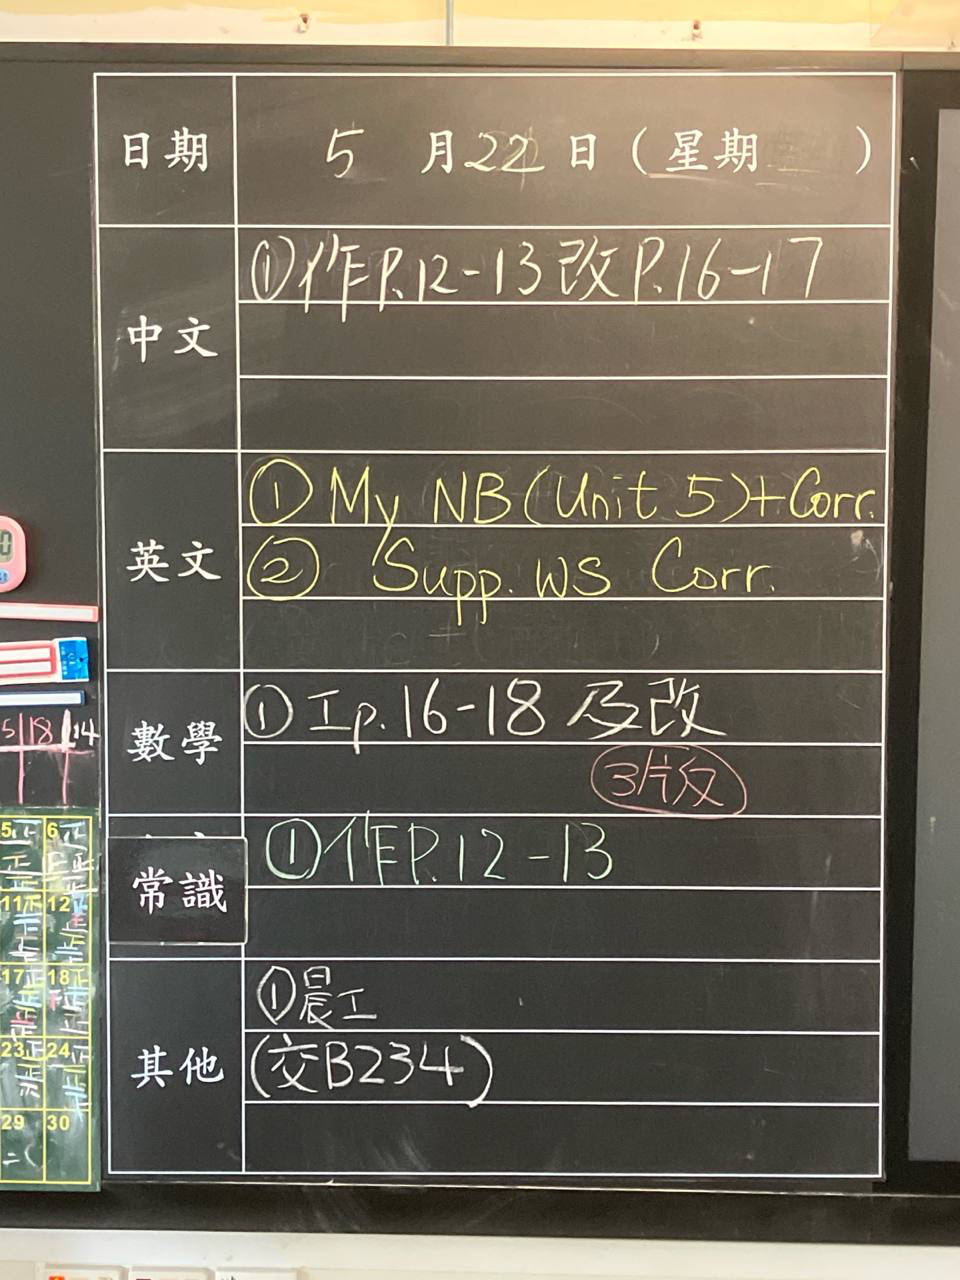 日期 5 月 22 日 ( 星期 )
中文
①作P.12-13改P.16-17
英文
① My NB (Unit 5)+Corr.
② Supp. WS Corr.
數學
①工p.16-18 及改
3片反
常識
①作P.12-13
其他
①晨工
(交B234)
5 18 14
5 6
11 12
17 18
23 24
29 30